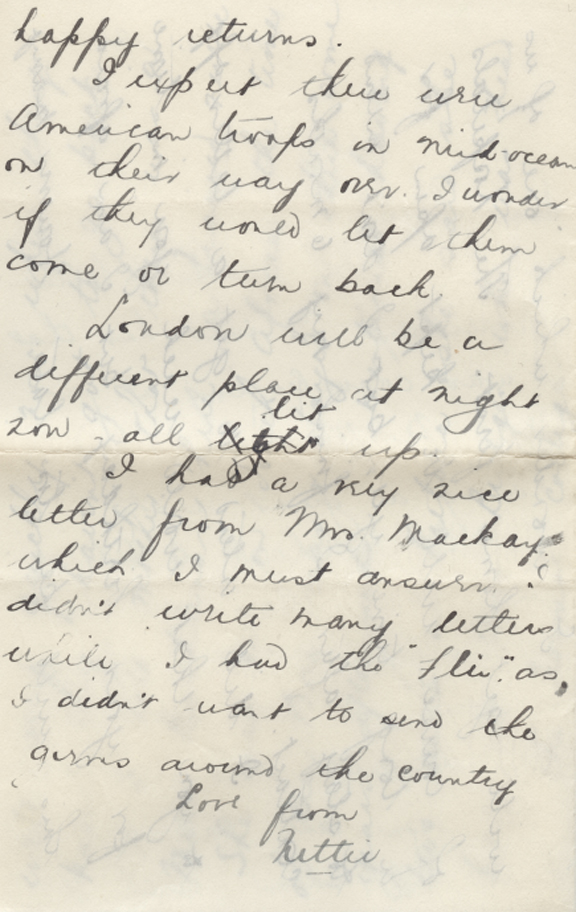 happy returns.
I expect there were
American troops in mid-ocean
on their way over. I wonder
if they would let them
come or turn back.
London will be a
different place at night
lit
now - all up.
I had a very nice
letter from Mrs. Mackay
which I must answer. I
didn't write many letters
while I had the "flu". as,
I didn't want to send the
germs around the country
Love from
Nettie